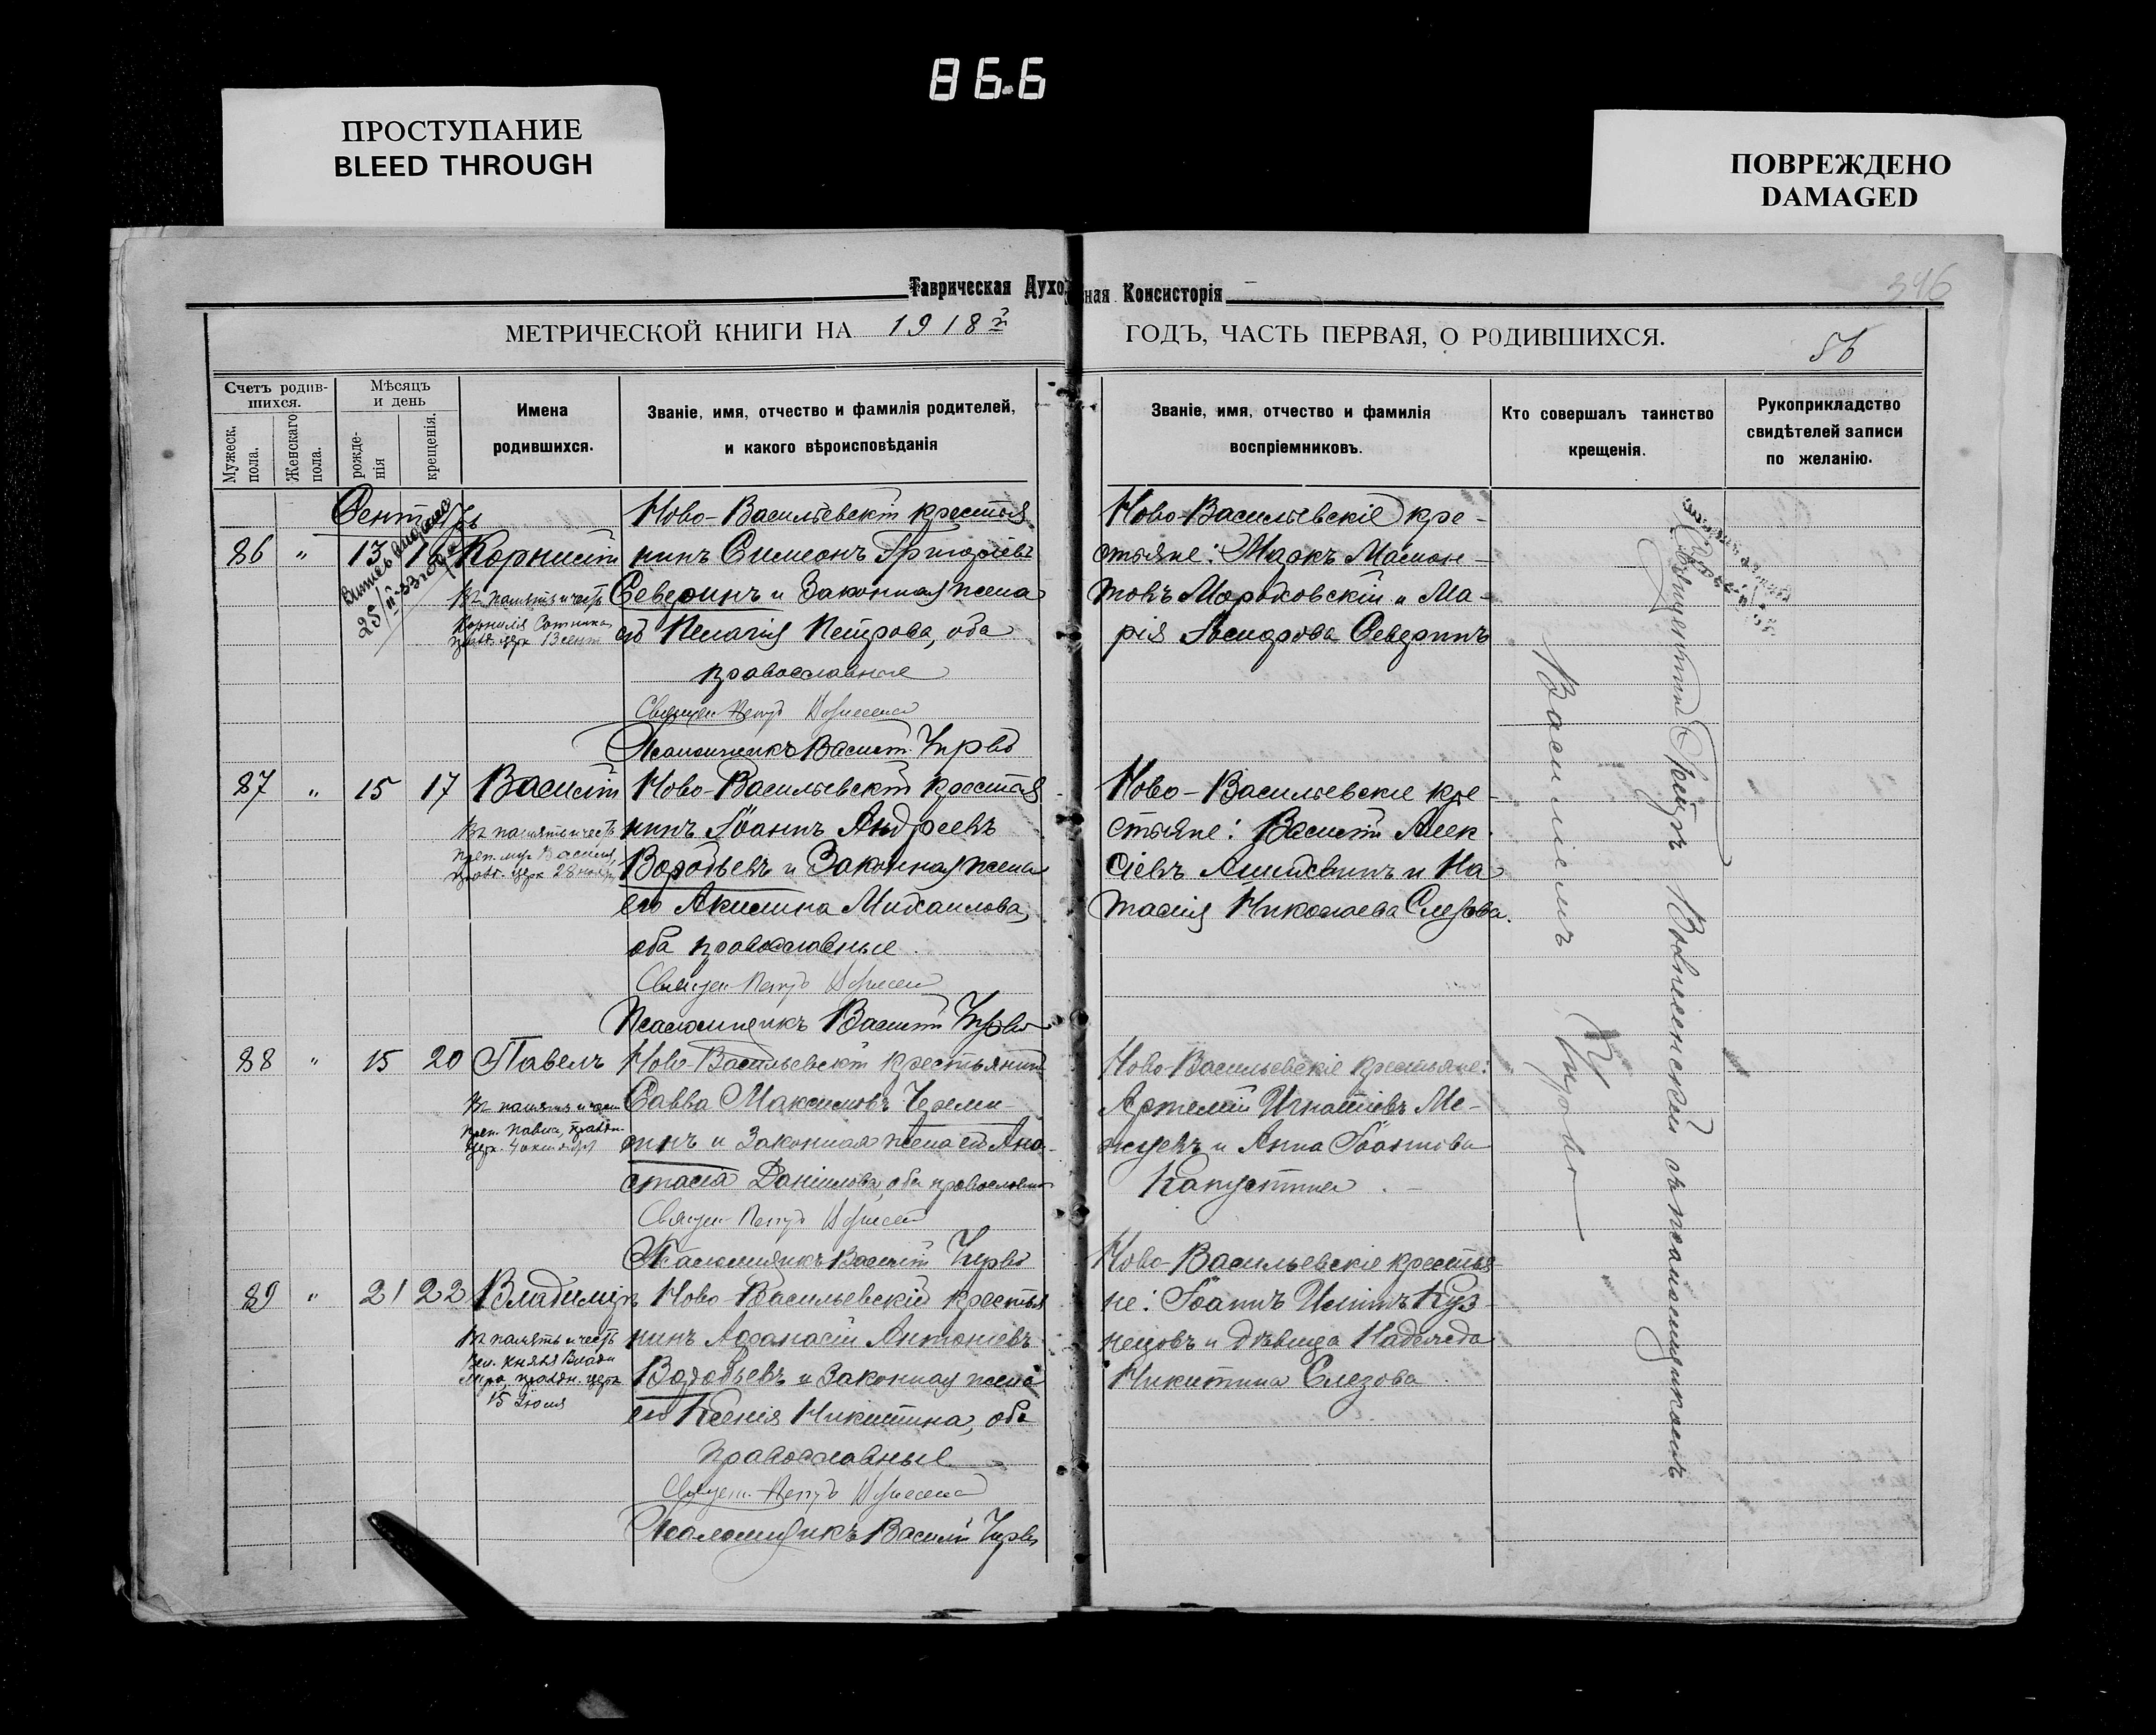 866
ПРОСТУПАНИЕ
BLEED THROUGH
ПОВРЕЖДЕНО
DAMAGED
Таврическая Духовная Консисторія
346
МЕТРИЧЕСКОЙ КНИГИ НА 1918й ГОДЪ, ЧАСТЬ ПЕРВАЯ, О РОДИВШИХСЯ.
56
Счетъ родившихся.
Мужеск. пола.
Женскаго пола.
Мѣсяцъ и день
рожденія
крещенія.
Имена
родившихся.
Званіе, имя, отчество и фамилія родителей,
и какого вѣроисповѣданія
Званіе, имя, отчество и фамилія
воспріемниковъ.
Кто совершалъ таинство
крещенія.
Рукоприкладство
свидѣтелей записи
по желанію.
Сентябрь
86 " 13 Корнилій
Въ память и честь
Корнилія Сотника
празд. церк 13 сент
Ново-Васильевскій крестья
нинъ Симеонъ Григоріевъ
Северинъ и законная жена
его Пелагія Петрова, оба
православные
Священ Петръ
Псаломщикъ Василій Цирво
Ново-Васильевскіе кре-
стьяне: Маркъ Мамон-
товъ Мороховскій и Ма-
рія Северинъ
87 " 15 17 Василій
Въ память и честь
Василія,
празд. церк 28 нояб
Ново-Васильевскій крестья
нинъ Іоаннъ Андреевъ
Воробьевъ и законная жена
его Акилина Михаилова,
оба православные
Священ Петръ
Псаломщикъ Василій Цирво
Ново-Васильевскіе кре-
стьяне: Василій Алек
сіевъ и На
талія Николаева Слезова.
88 " 15 20 Павелъ
Въ память и чест
преп. Павла, праздн.
церк. 4 октября
Ново-Васильевскій крестьянинъ
Савва Максимовъ
и законная жена его Ана-
стасія Даніилова, оба православны
Священ Петръ
Псаломщикъ Василій Цирво
Ново-Васильевскіе крестьяне:
Артемій Игнатіевъ Ме-
и Анна Іоаннова
Капустина
89 " 21 22 Владиміръ
Въ память и честь
Вел. Князя Влади
міра праздн. церк
15 Іюля
Ново-Васильевскій крестья
нинъ Аѳанасій Антоніевъ
Воробьевъ и законная жена
его Ксенія Никитина, оба
православные
Священ. Петръ
Псаломщикъ Василій Цирво
Ново-Васильевскіе крестья-
не: Іоаннъ Куз-
нецовъ и дѣвица Надежда
Никитина Слезова
Священникъ Петръ Вознесенскій съ псаломщикомъ
Василіемъ Цирво